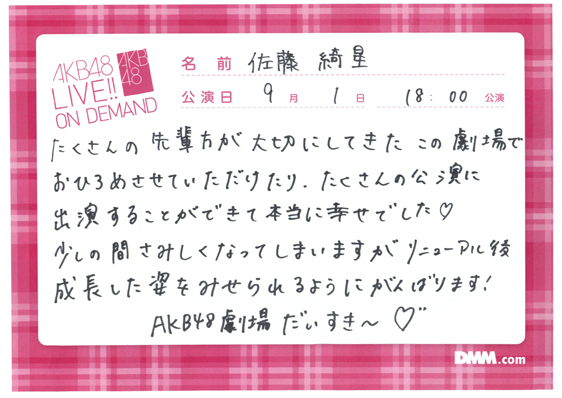 AKB48
LIVE!!
ON DEMAND
AKB
48
名前 佐藤 綺星
公演日 9月 1日 18:00 公演
たくさんの 先輩方が 大切にしてきた この 劇場で
おひろめさせていただけたり、たくさんの公演に
出演することができて本当に幸せでした♡
少しの間さみしくなってしまいますが リニューアル後
成長した姿をみせられるようにがんばります!
AKB48劇場 だいすき〜 ♡"
DMM.com